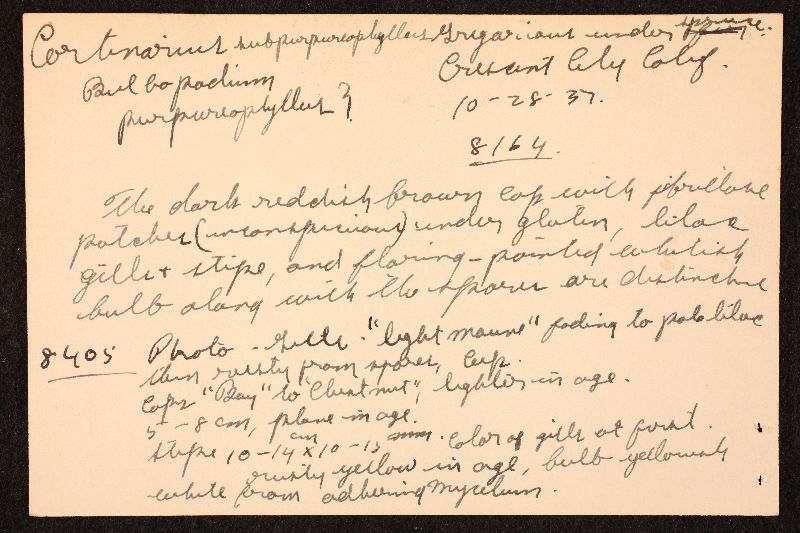 Cortinarius subpurpureophyllus Gregarious under spruce.
Bulbopodium Crescent City Calif.
purpureophyllus? 10-28-37.
8164.
The dark reddish brown cap with fibrillose
patches (inconspicuous) under gluten, lilac
gills + stipe, and flaring-pointed whitish
bulb along with the spores are distinctive
8405 Photo - Gills - "light mauve" fading to pale lilac
then rusty from spores,
Caps "Bay" to "Chestnut", lighter in age.
5 - 8 cm, plane in age.
stipe 10-14 cm x 10-15 mm. color of gills at first.
rusty yellow in age, bulb yellowish
white from adhering mycelium.